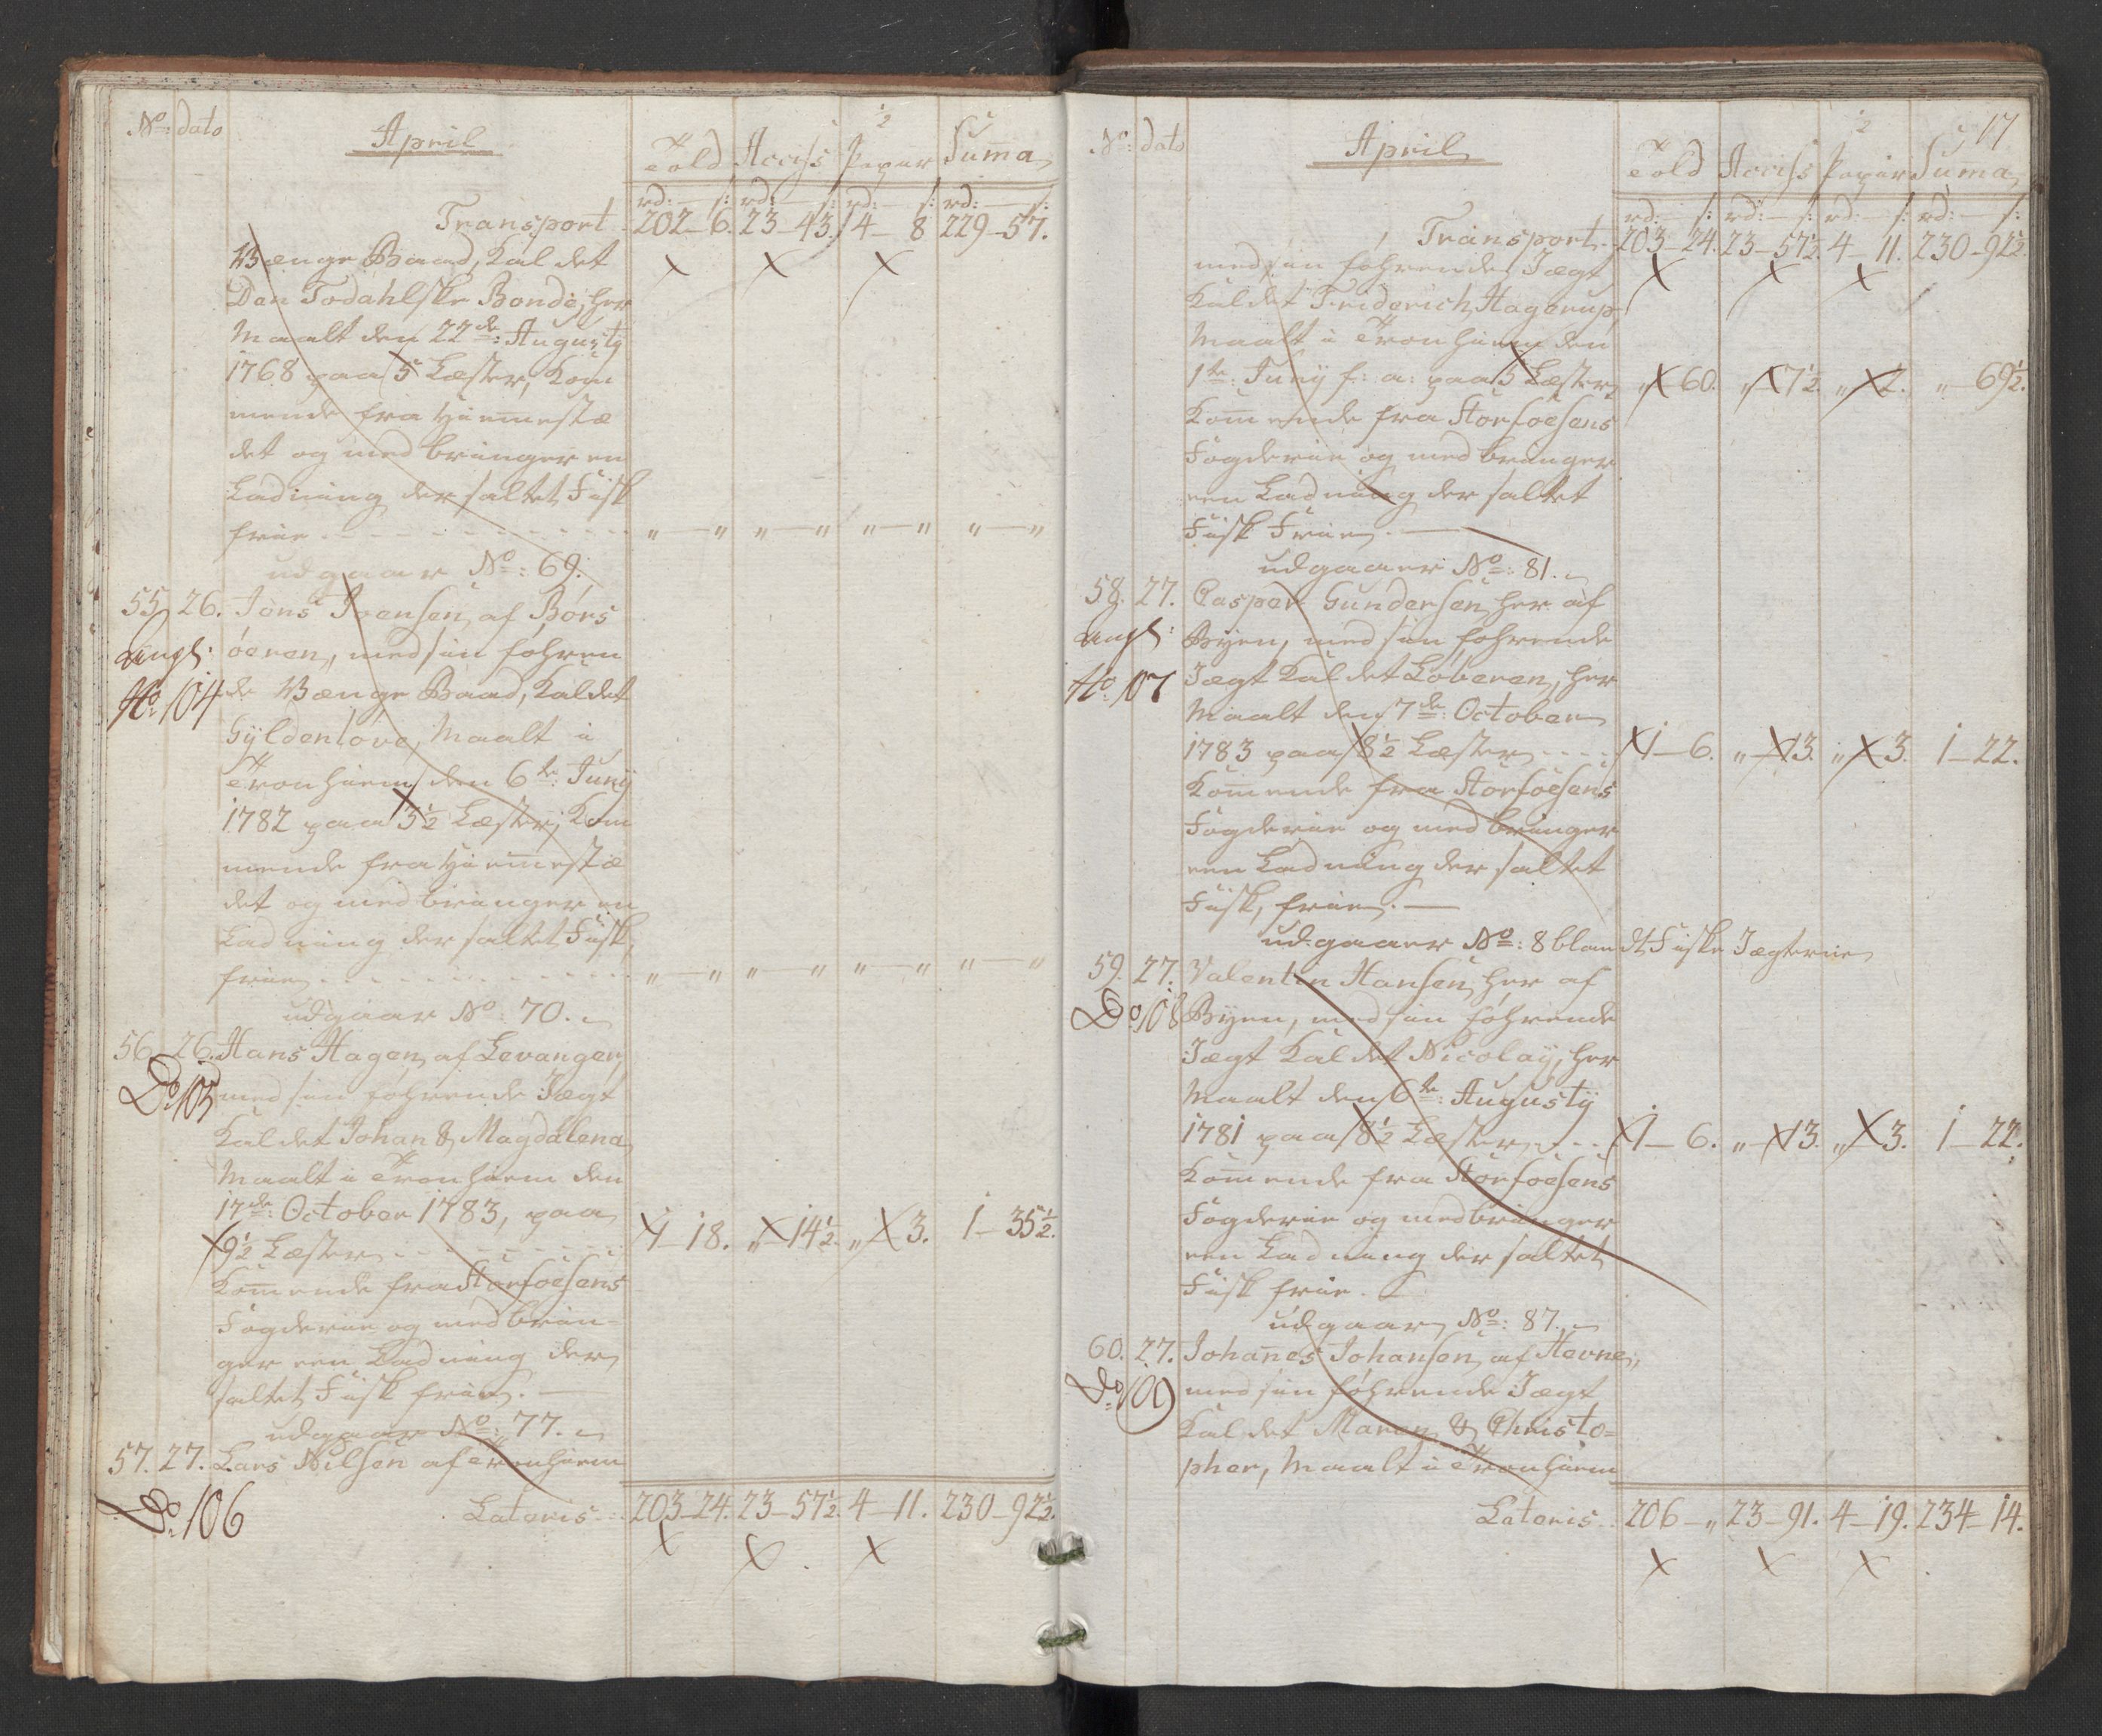 No: dato
April
Told Acciss Papiir Suma
rd:—s: rd:—s: rd:—s: rd:—s:
Transport 202—6. 23—43. 4—8 229—57.
Wenge Baad, Kaldet
Den Todahlske Bonde, her
Maalt den 22de: Augusty
1768 paa 5 Læster, Kom
mende fra Hiemestæ
det og medbringer en
Ladning der saltet Fisk
frie . . . . . „—„ „—„ „—„ „—„
udgaar No: 69.
55 26. Jons Joensen af Børs
angl: øeren, med sin føhren
No: 104 de Wenge Baad, Kaldet
Gyldenløve, Maalt i
Tronhiem den 6te: Juny
1782 paa 3½ Læster, Kom
mende fra Hiemestæ
det og medbringer en
Ladning der saltet Fisk,
frie . . . . . „—„ „—„ „—„ „—„
udgaar No: 70.
56 26. Hans Hagen af Levanger,
Do 105 med sin føhrende Jægt
Kaldet Johan & Magdalena
Maalt i Tronhiem den
17de: October 1783, paa
9½ Læster . . . . 1—18. „—14½. „—3. 1—35½.
Kommende fra Storfoesens
Fogderie og medbrin-
ger een Ladning der
saltet Fisk frie. —
udgaar No: 77.
57. 27. Lars Nilsen af Tronhiem
Do: 106 Lateris . 203—24. 23—57½. 4—11. 230—92½.
17
No: dato
April
Told Acciss Papiir Suma
rd:—s: rd:—s: rd:—s: rd:—s:
Transport 203—24. 23—57½. 4—11. 230—92½.
med sin føhrende Jægt
Kaldet Friderich Hagerup,
Maalt i Tronhiem den
1te: Juny f: a: paa 5 Læster, „—60. „—7½. „—2. „—69½.
Kommende fra Storfoesens
Fogderie og medbringer
een Ladning der saltet
Fisk Frie. —
udgaaer No: 81.
58. 27. Casper Gundersen her af
angl: Byen, med sin føhrende
No: 107 Jægt Kaldet Løberen, her
Maalt den 7de: October
1783 paa 8½ Læster . . . . 1—6. „—13. „—3. 1—22.
Kommende fra Storfoesens
Fogderie og medbringer
een Ladning der saltet
Fisk, frie. —
udgaaer No: 8 blandt Fiske Jægterne
59. 27. Valentin Hansen her af
Do 108 Byen, med sin føhrende
Jægt Kaldet Nicolay, her
Maalt den 6te: Augusty
1781 paa 8½ Læster . . . 1—6. „—13. „—3. 1—22.
Kommende fra Storfoesens
Fogderie og medbringer
een Ladning der saltet
Fisk frie.
udgaar No: 87.
60. 27. Johanes Johansen af Hevne,
Do 109 med sin føhrende Jægt
Kaldet Maren & Christo=
pher, Maalt i Tronhiem
Lateris . 206—„ 23—91. 4—19. 234—14.